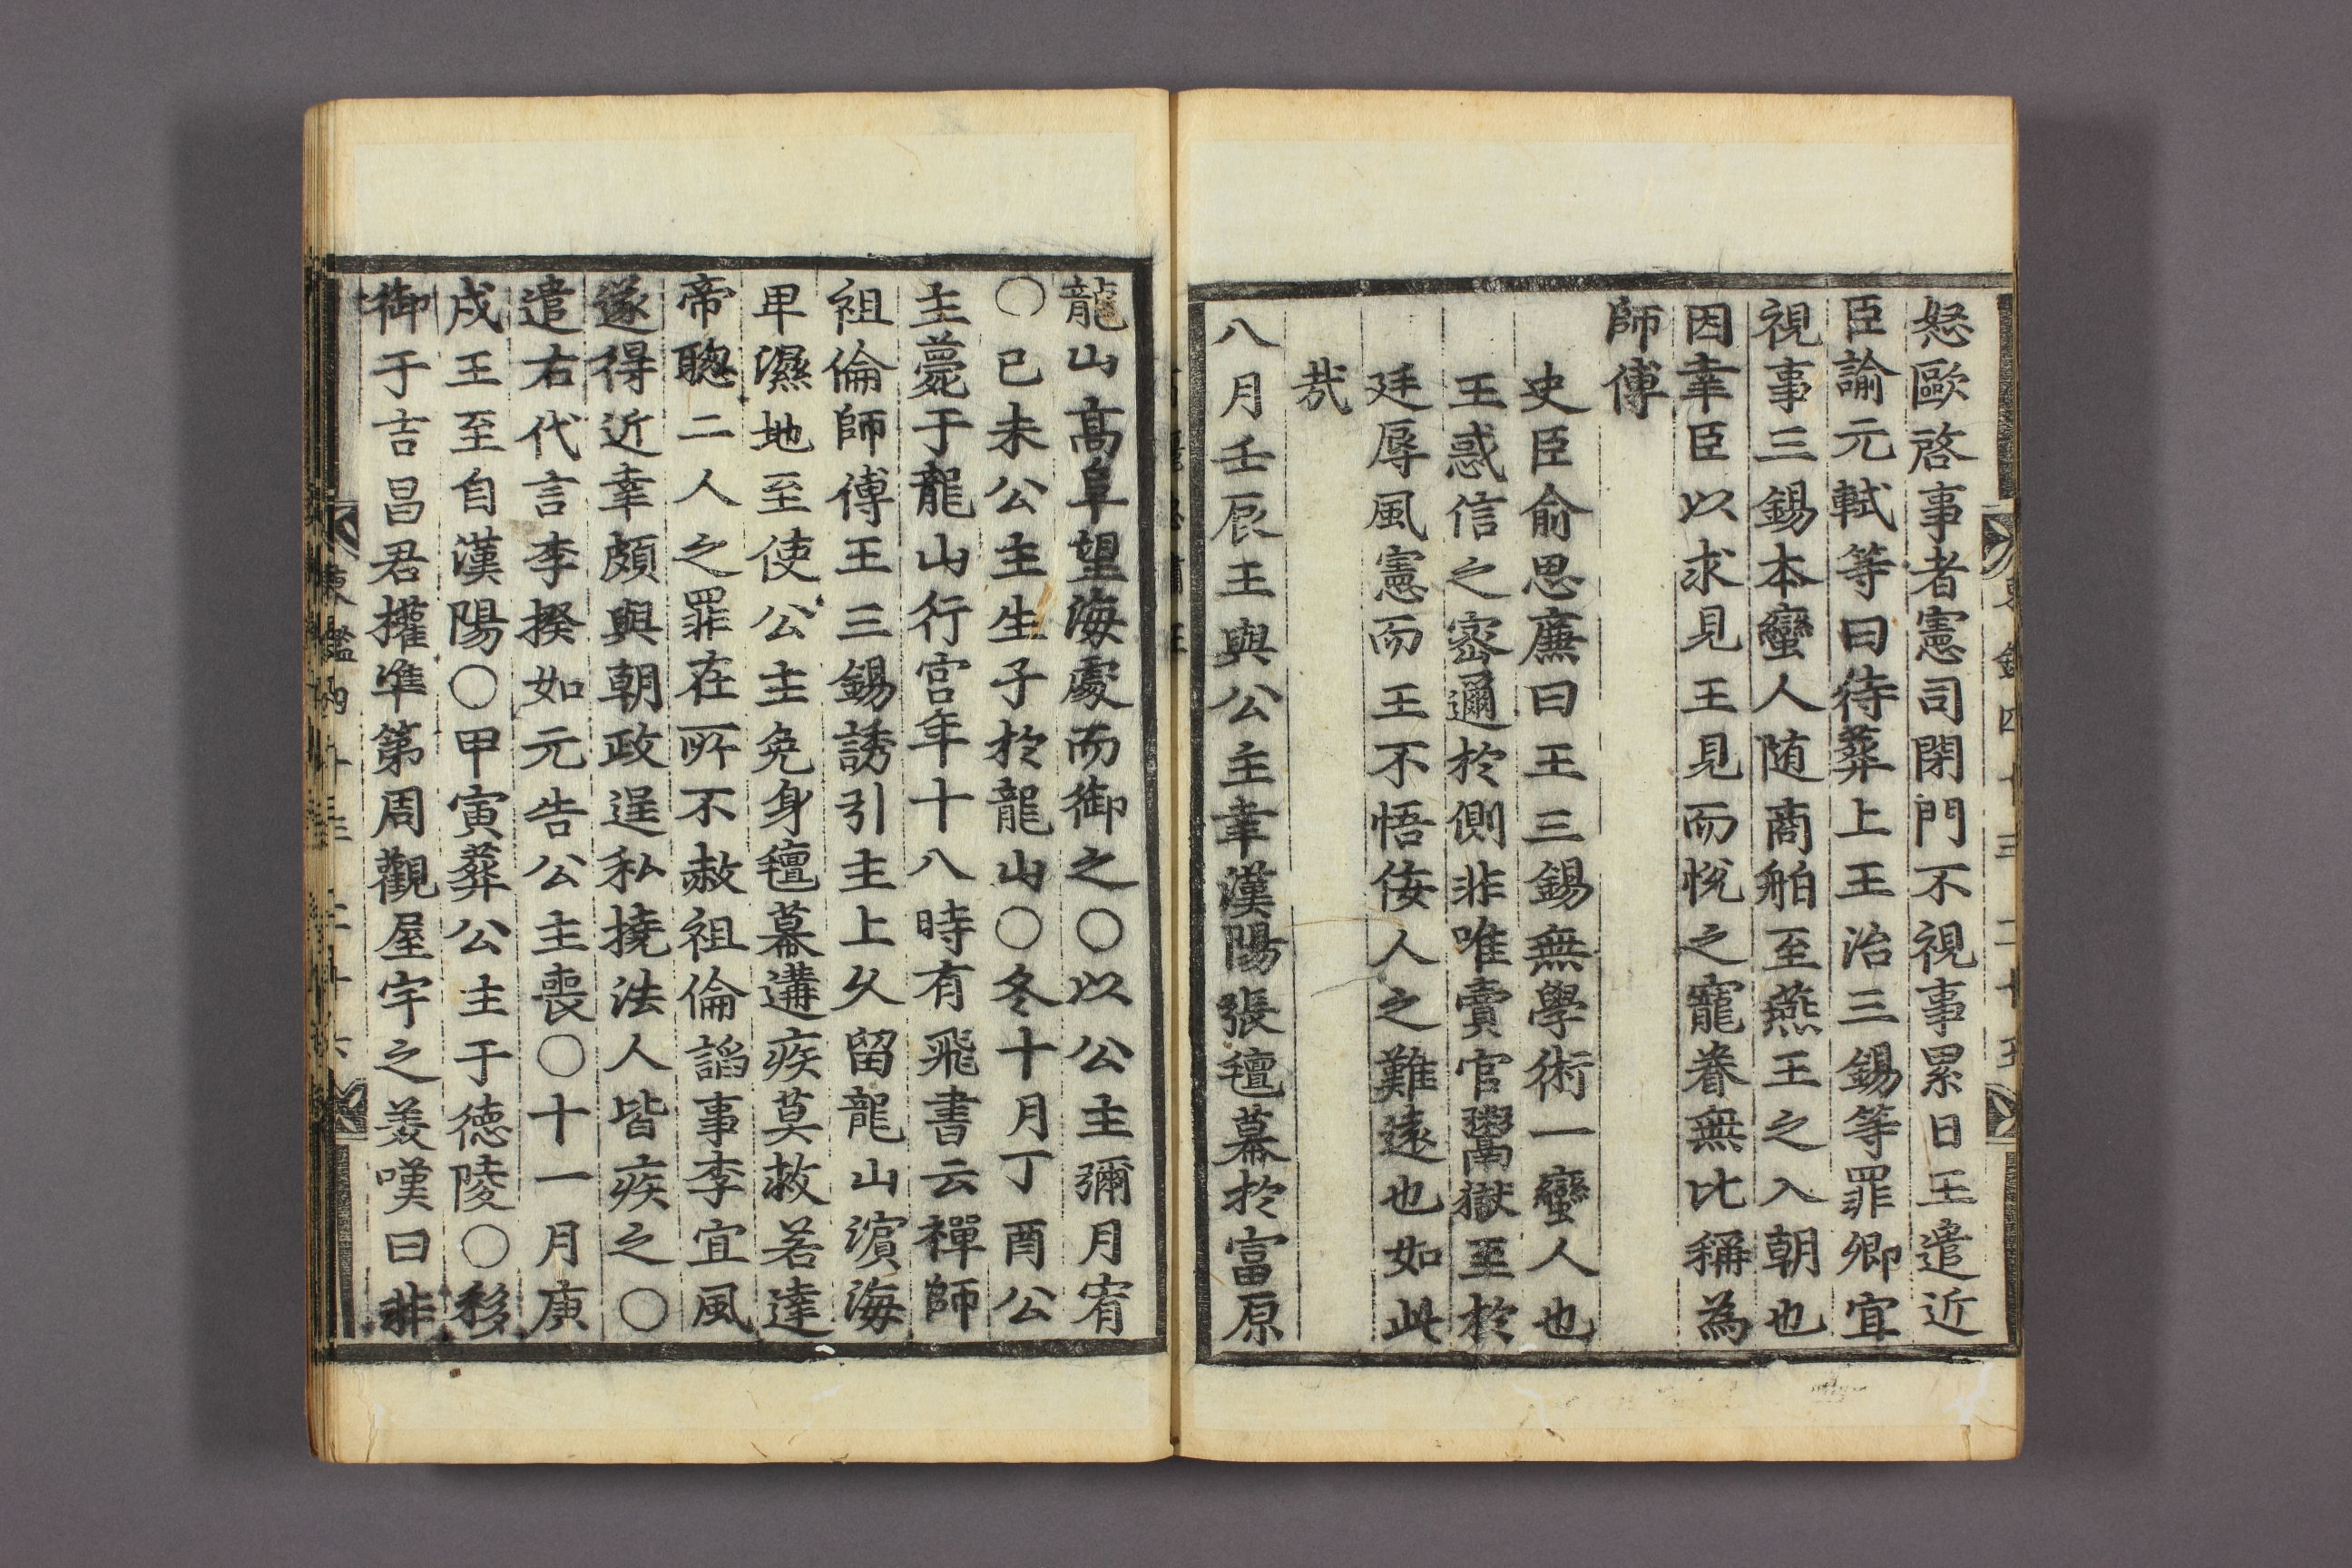 怒歐啓事者憲司閉門不視事累日王遣近
臣諭元軾等曰待葬上王治三錫等罪卿宜
視事三錫本蠻人随商舶至燕王之入朝也
因幸臣以求見王見而恱之寵眷無比稱為
師傅
史臣俞思廉曰王三錫無學術一蠻人也
王惑信之宻邇於側非唯賣官鬻獄至於
廷辱風憲而王不悟侫人之難遠也如此
㢤
八月壬辰王與公主幸漢陽張氊幕於富原
龍山髙阜望海處而御之○以公主彌月宥
○已未公主生子於龍山○冬十月丁酉公
主薨于龍山行宫年十八時有飛書云禪師
祖倫師傅王三錫誘引主上乆留龍山濵海
卑濕地至使公主免身氊幕遘疾莫救若達
帝聦二人之罪在所不赦祖倫謟事李宜風
遂得近幸頗與朝政逞私撓法人皆疾之○
遣右代言李揆如元告公主喪○十一月庚
戌王至自漢陽○甲寅葬公主于德陵○移
御于吉昌君權準第周觀屋宇之羙嘆曰非